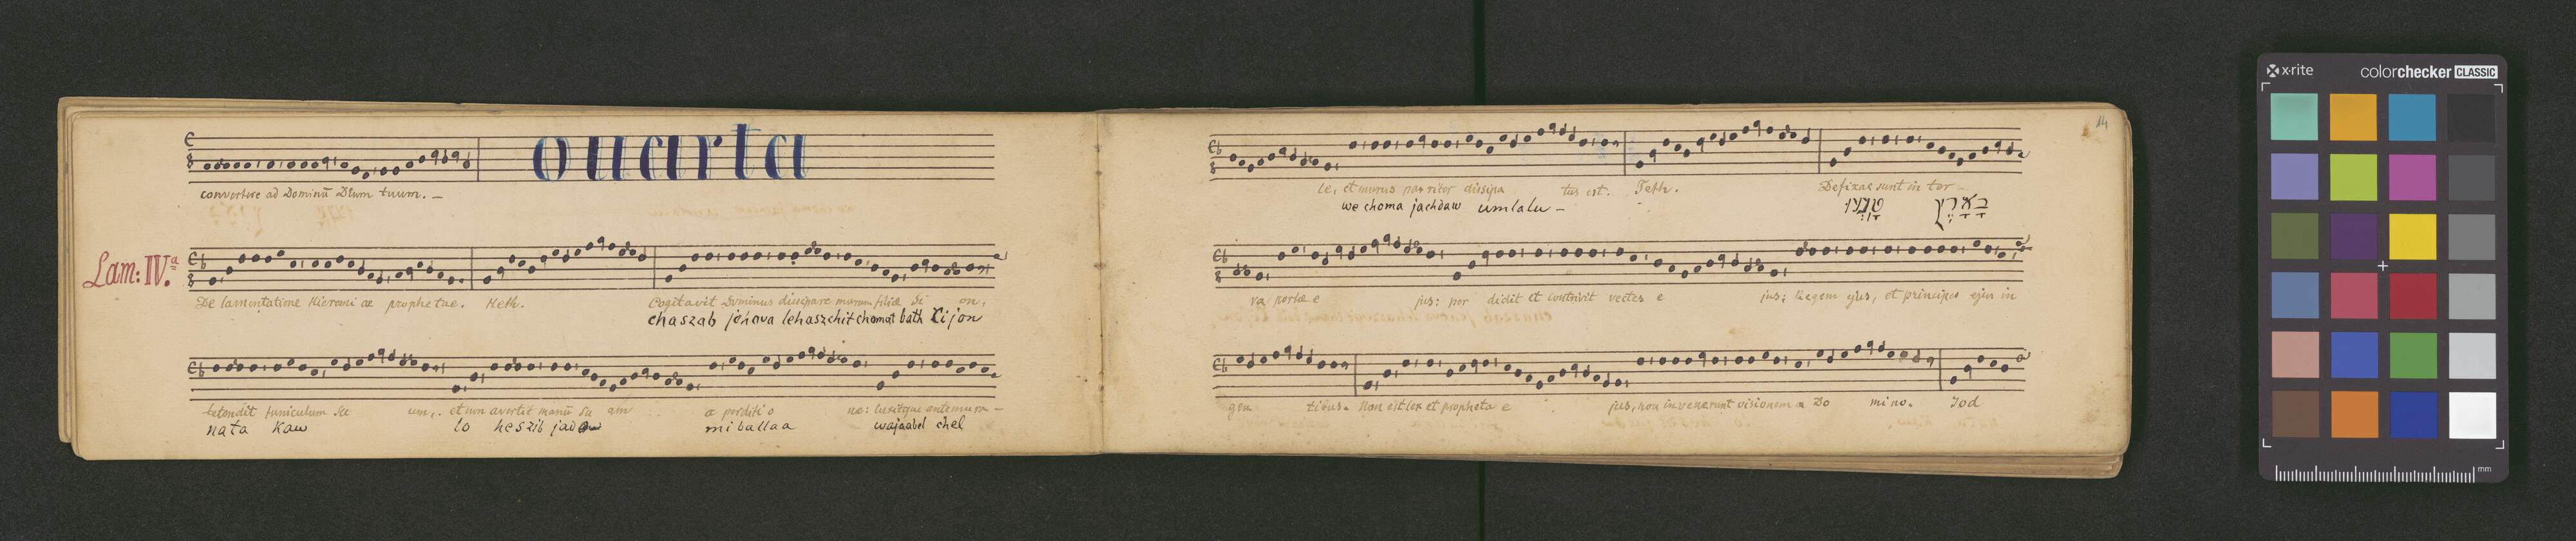 quarta
convertere ad Dominū Dēum tuum. –
Lam: IV.ª
De lamentatione Hieremi æ prophetae. Heth. Cogitavit Dominus dissipare murum filiæ Si on,
chaszab jehova lehaszchit chomat bath Cijon
tetendit funiculum su um, et non avertit manū su am a perditi o ne: luxitque antemura –
nata kaw lo heszib jadow miballaa wajaabel chel
14
le, et murus pariter dissipa tus est. Teth. Defixae sunt in ter –
we choma jachdaw umlalu – טָבְעוּ בָאָרֶץ
ra portæ e jus: per didit et contrivit vectes e jus; Regem ejus, et principes ejus in
gen tibus. Non est lex et propheta e jus, non invenerunt visionem a Do mino. Jod
x·rite colorchecker CLASSIC
mm